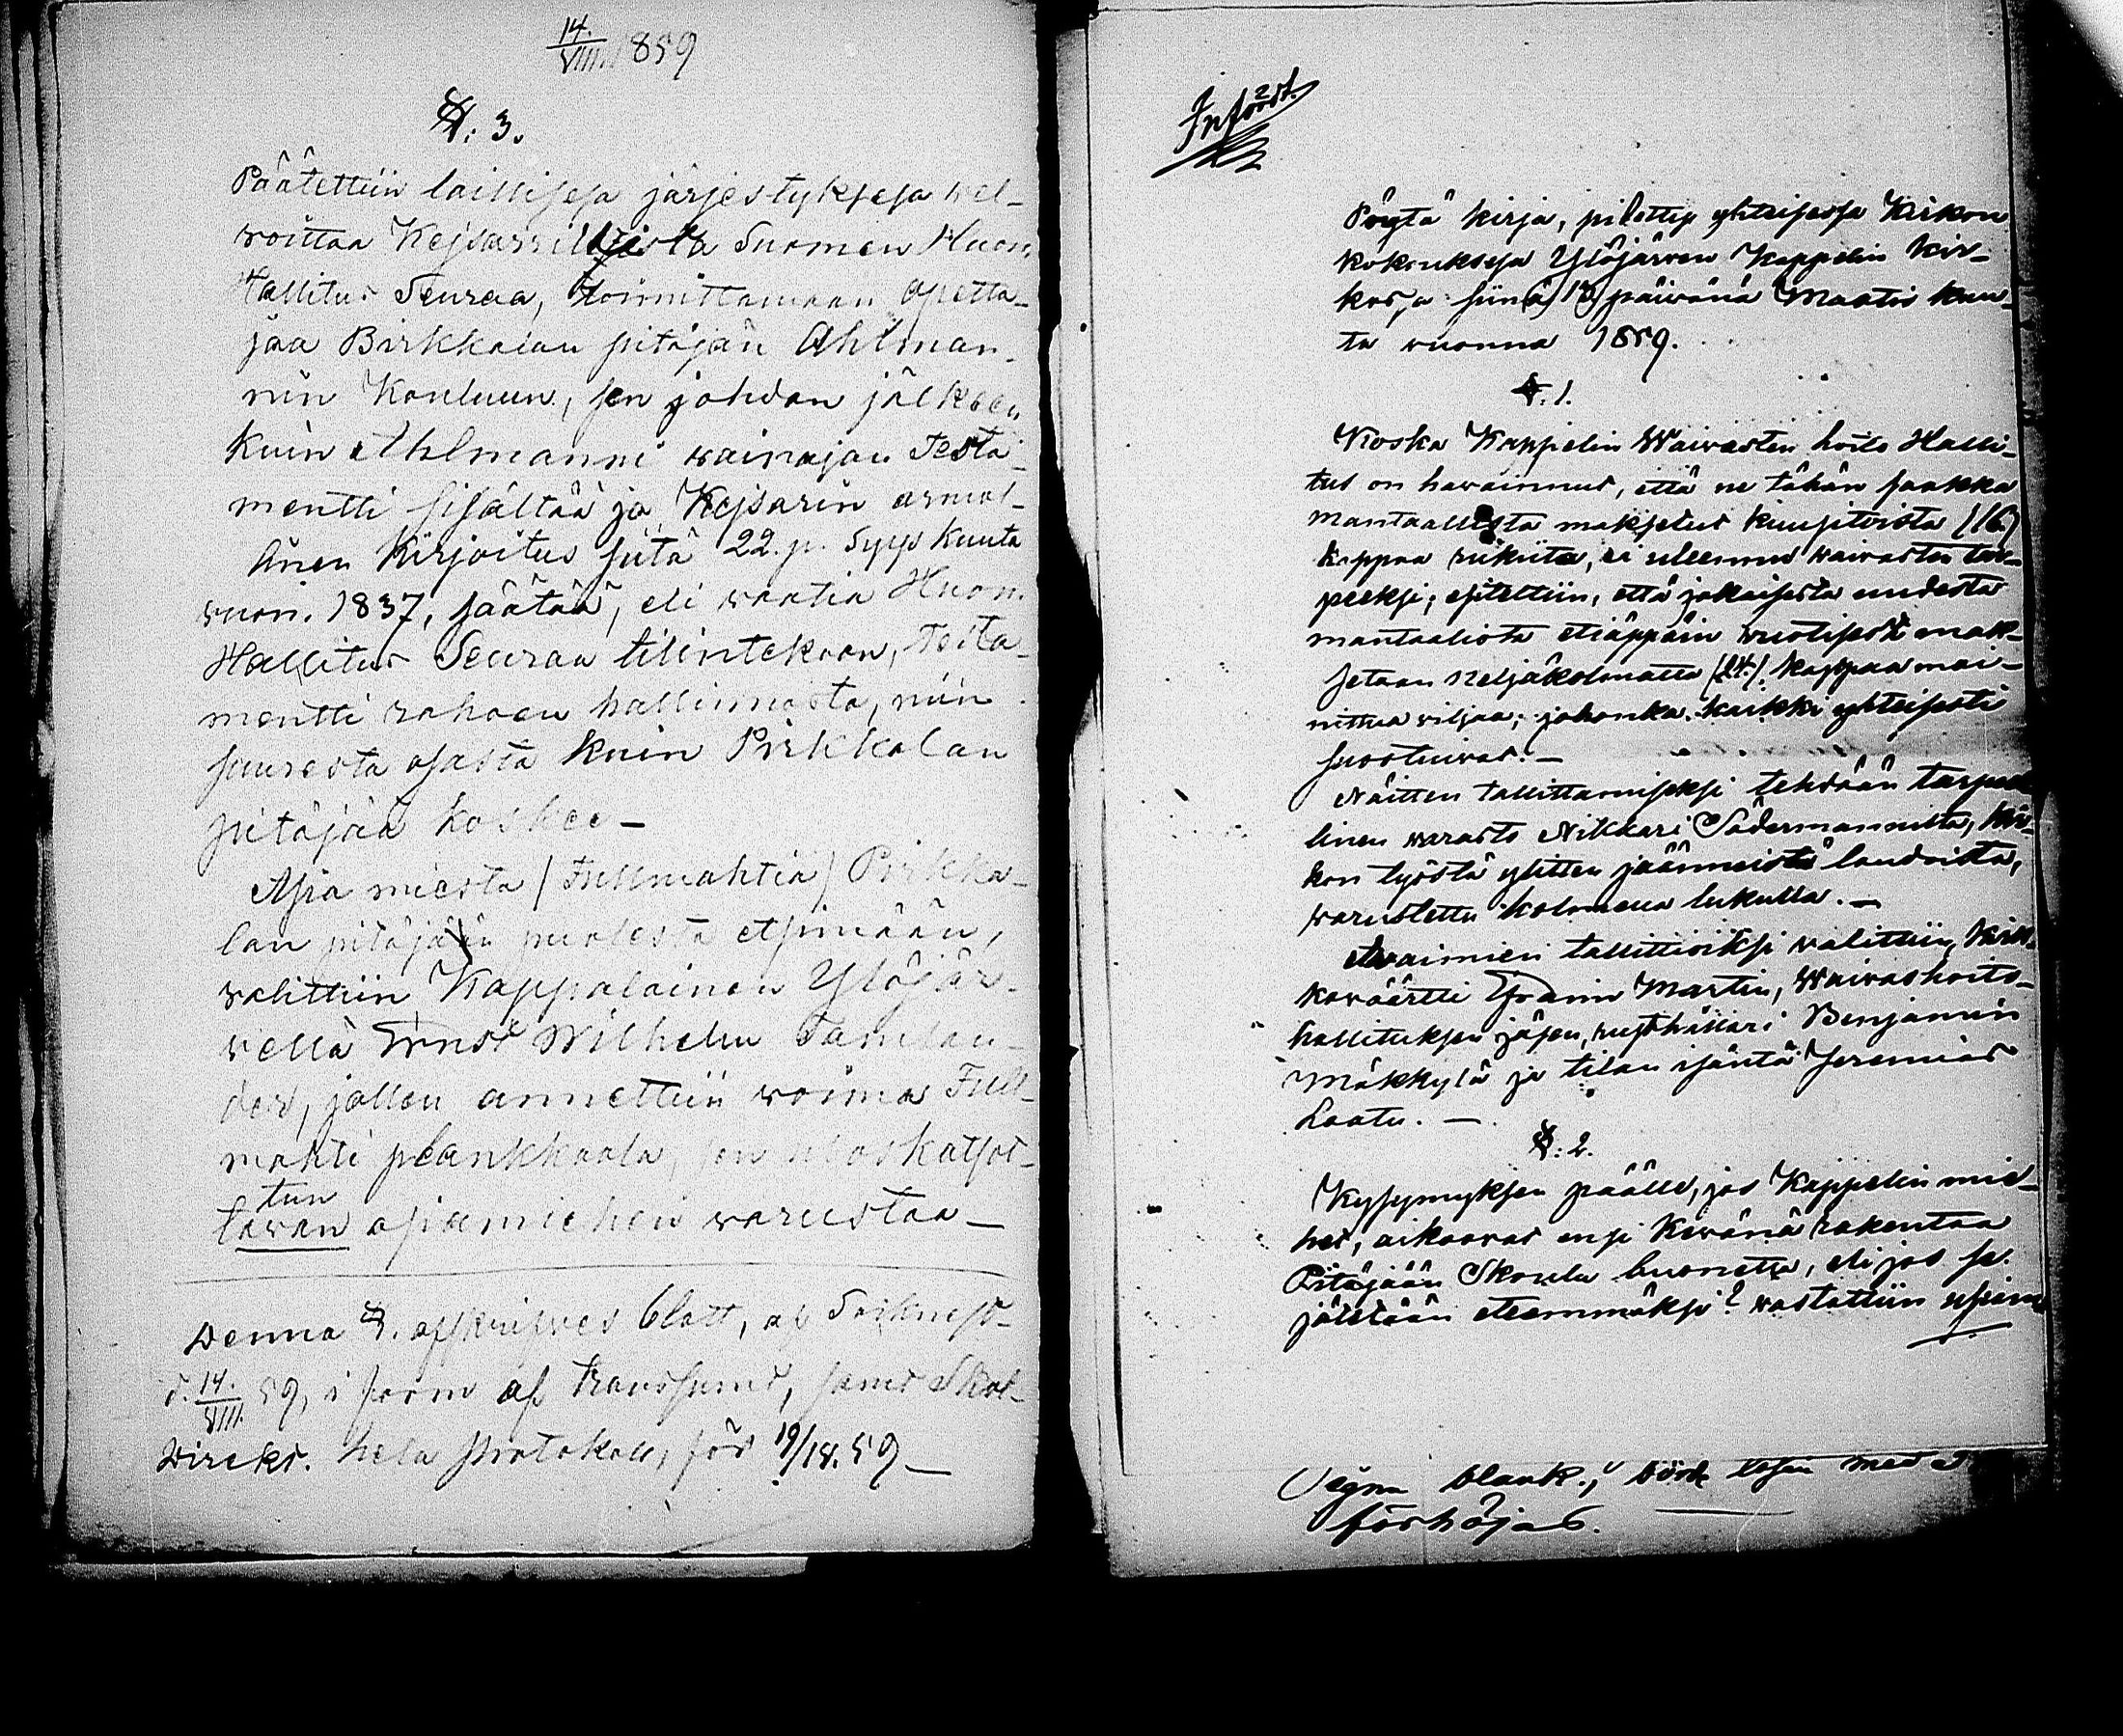 14./VIII. 1859
§: 3.
Päätettiin laillisesa järjestyksesä wel-
woittaa Kejsarrillista Suomen Huon.
Hallitus Seuraa, toimittamaan opetta-
jaa Birkkalan pitäjän Ahlman-
nin Kouluun, sen johdon jälkeen
kuin Ahlmanni wainajan Testa-
mentti sisältää ja Kejsarin armol-
linen Kirjoitus siitä 22. p. Syys Kuuta
vuon. 1837, säätää, eli waatia Huon.
Hallitus Seuraa tilintekoon, Testa-
mentti rahaen hallinnosta, niin
suuresta osasta kuin Pirkkalan
pitäjää koskee -
Asia miestä (Fullmahtia) Pirkka-
lan pitäjään puolesta etsimään,
walittiin Kappalainen Ylöjär-
vellä Ernst Wilhelm Tamlan-
der, jollen annettiin woimas Full-
mahti plankkaala, sen uloskatsot-
tun
tawan asiamiehen warustaa -
Denna §. afskrifves blott, af Socknest-
d. 14./VIII. 59, i form af transsumt, samt Skol-
direkt. hela Protokoll, för 19/18.59 -
2
Införd.
Pöytä kirja, pidettiy yhteisessa Kirkon
kokouksesa Ylöjärwen Kappelin kir-
kosa siinä 13 päivänä Maalis kuu-
ta vuonna 1859.
§. 1.
Koska Kappelin Waivasten hoito Halli-
tus on hawainnut, että ne tähän saakka
mantaallista maksetut kuusitoista (16)
kappaa rukiita, ei uleennut waivasten tar-
peeksi; esiteltiin, että jokaisesta uudesta
mantaalista etiäppäin wuotisest mak-
setaan neljäkolmatta (24) kappaa mai-
nittua viljaa; johonka kaikki yhteisesti
suostuivat. -
Näitten tallittamiseksi tehdään tarpeel
linen warasto Nikkari Södermannilta, kir-
kon työstä ylitten jäänneistä laudoista,
warustettu kolmella lukulla. -
Awaimien tallittioiksi walittiin Kirk-
kowäärtti Efraim Martin, Waivashoito-
hallituksen jäsen, rusthållari Benjamin
Mäkkylä ja tilan isäntä Jeremias
Laatu. -
§: 2.
Kysymyksen päälle, jos Kappelin mie-
het, aikoovat ensi kevänä rakentaa
Pitäjään Skoulu huonetta, eli jos se
jätetään eteenmäksi? wastattiin usiem
Segnu blank., börk tasen med
förhöjas.